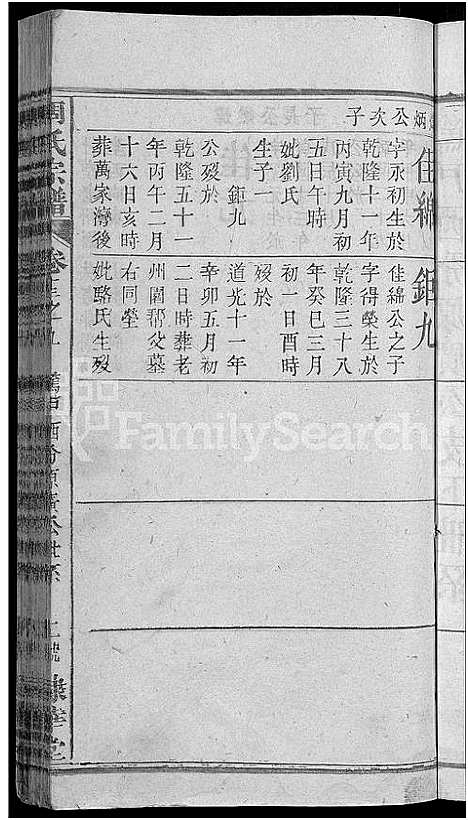 炳公次子
佳綿
字永初生於
乾隆十一年
丙寅九月初
五日午時
妣劉氏
生子一
鉅九
公歿於
乾隆五十一
年丙午二月
十六日亥時
葬萬家灣後
鉅九
佳綿公之子
字得榮生於
乾隆三十八
年癸巳三月
初一日酉時
歿於
道光十一年
辛卯五月初
二日時葬老
州圍鄒父墓
右同塋
妣駱氏生歿
周氏宗譜
之九
公世系
FamilySearch